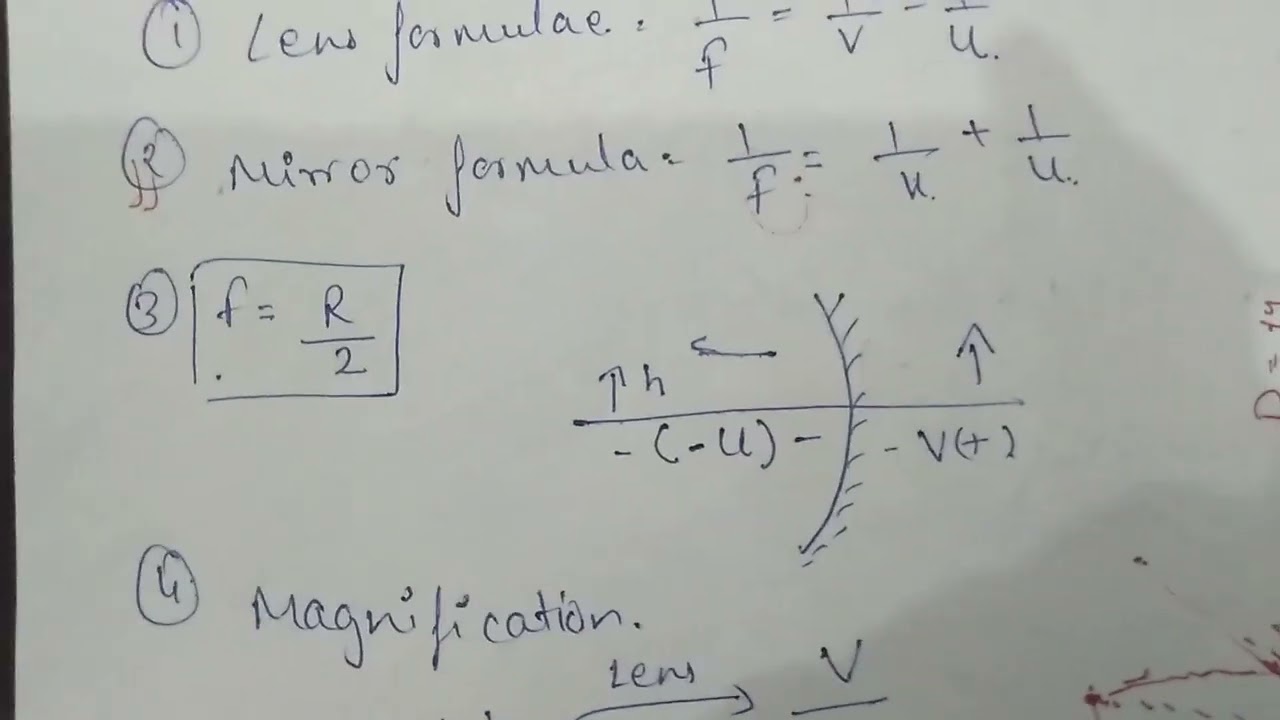 ① Lens formulae. 1/f = 1/v - 1/u.
② Mirror formula. 1/f = 1/u. + 1/u.
③ f = R/2
↑ h ← ↑
- (-u) - - V(+)
④ Magnification.
Lens → V
D =